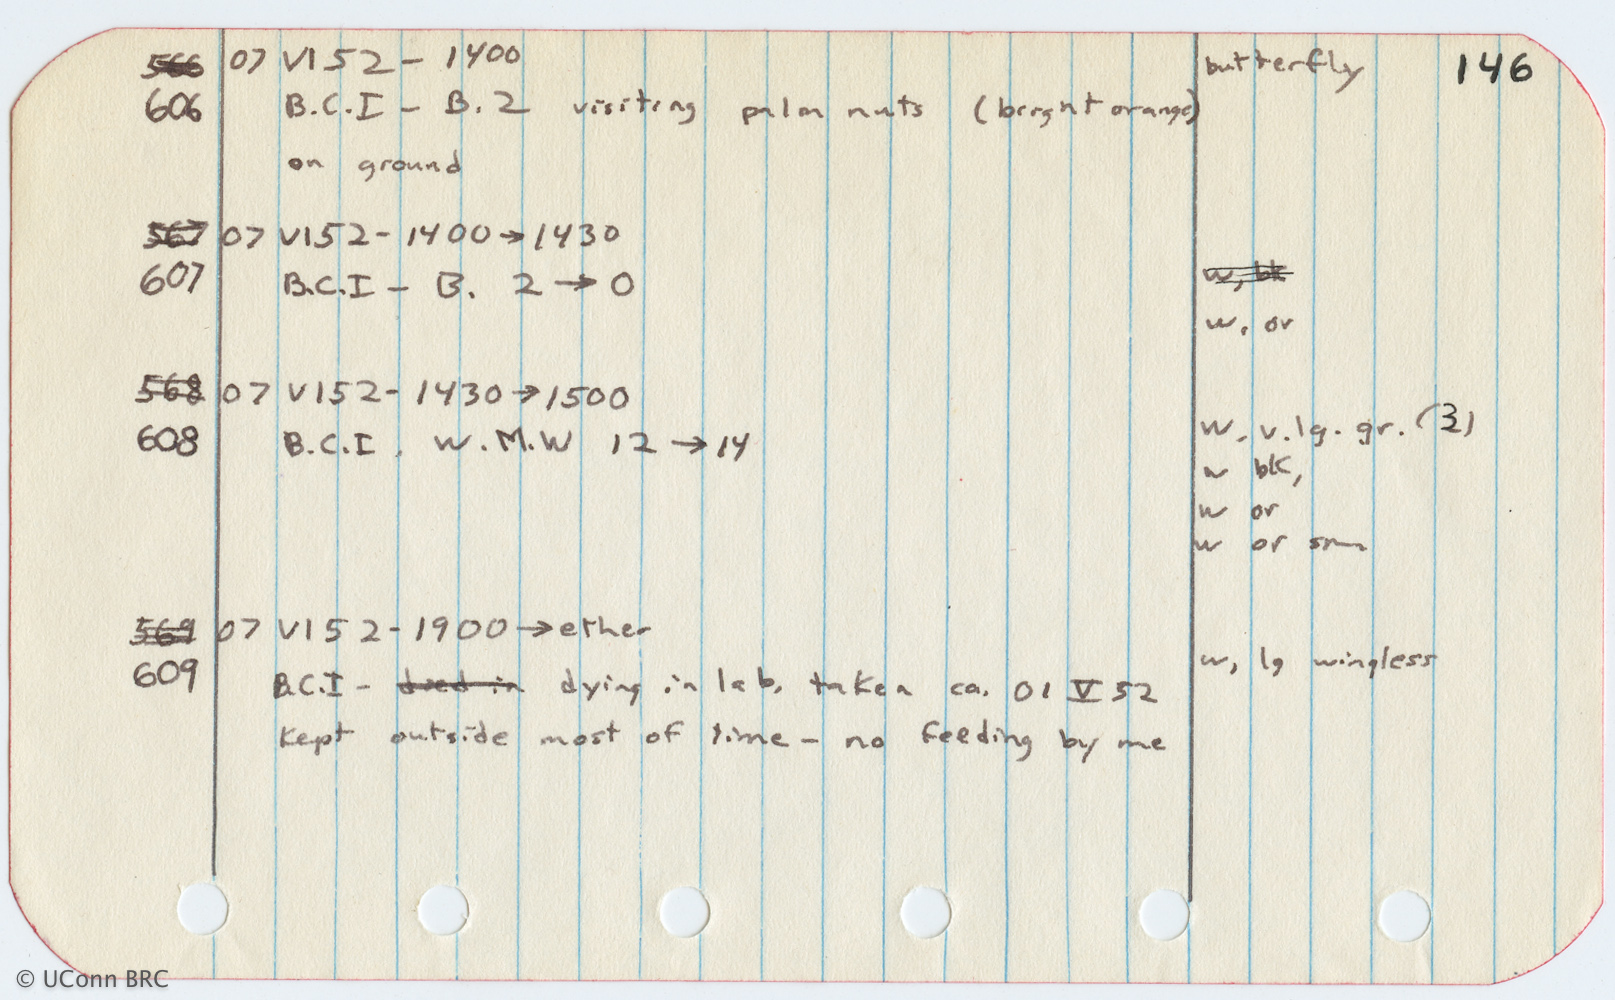 146
566 07 VI 52 - 1400 butterfly
606 B.C.I - B. 2 visiting palm nuts (bright orange)
on ground
567 07 VI 52 - 1400 → 1430
607 B.C.I - B. 2 → 0 w, bk
w, or
568 07 VI 52 - 1430 → 1500
608 B.C.I. W.M.W 12 → 14 w, v. lg. gr. (3)
w blk,
w or
w or sm
569 07 VI 52 - 1900 → ether
609 B.C.I - dying in lab, taken ca. 01 V 52 w, lg wingless
kept outside most of time - no feeding by me
© UConn BRC